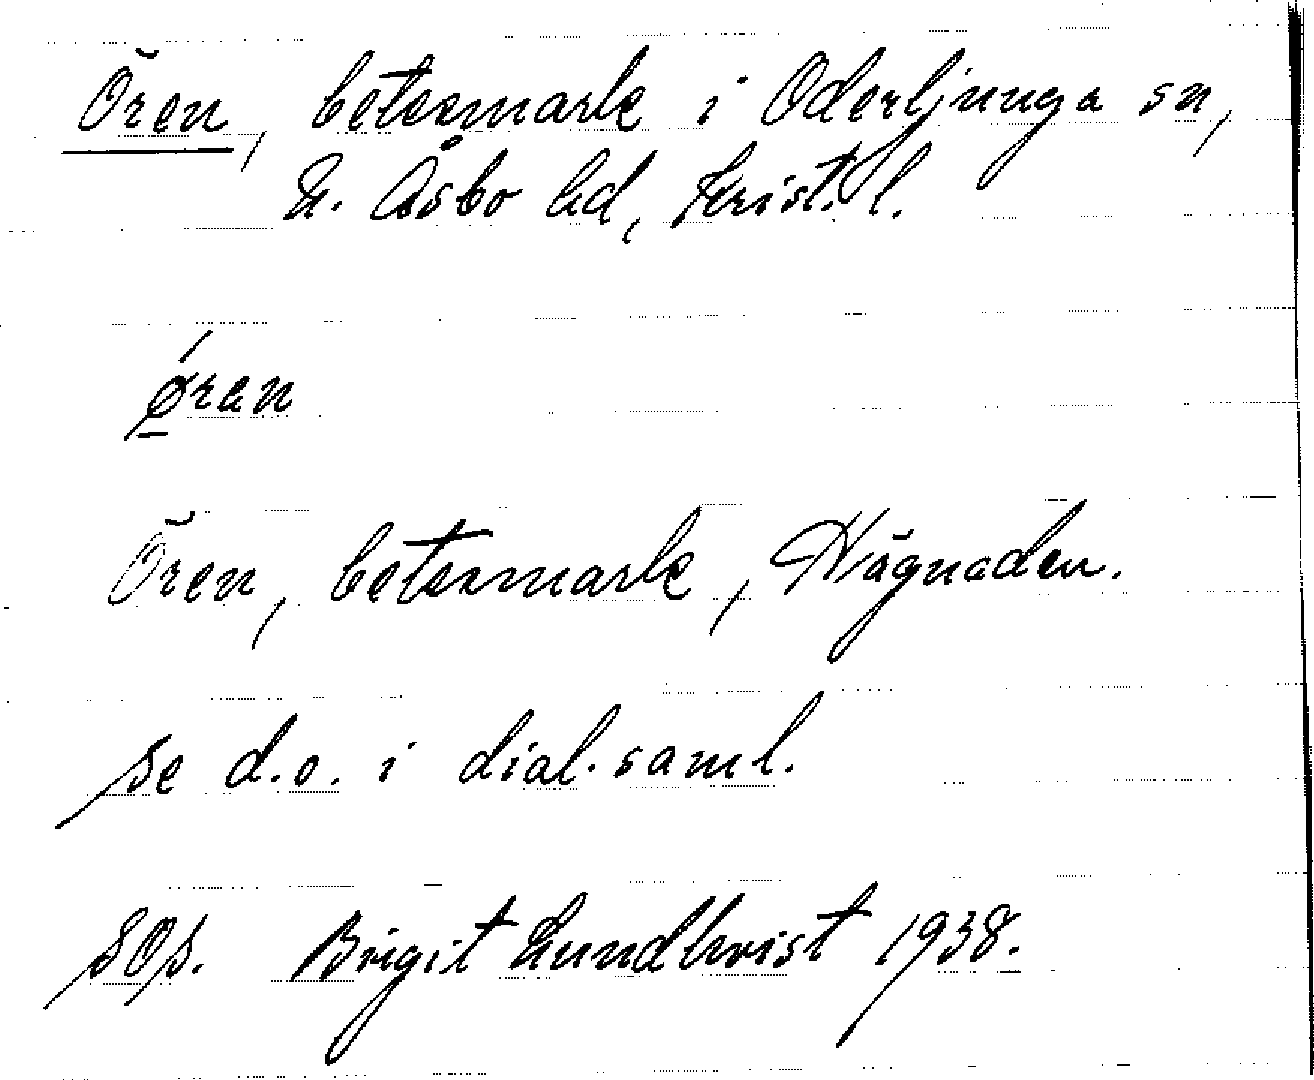 Ören, betesmark i Oderljunga sn,
N. Åsbo hd, Krist. l.
øran
Ören, betesmark, Hägnaden.
se d.o. i dial.saml.
SOS. Brigit Lundkvist 1938.